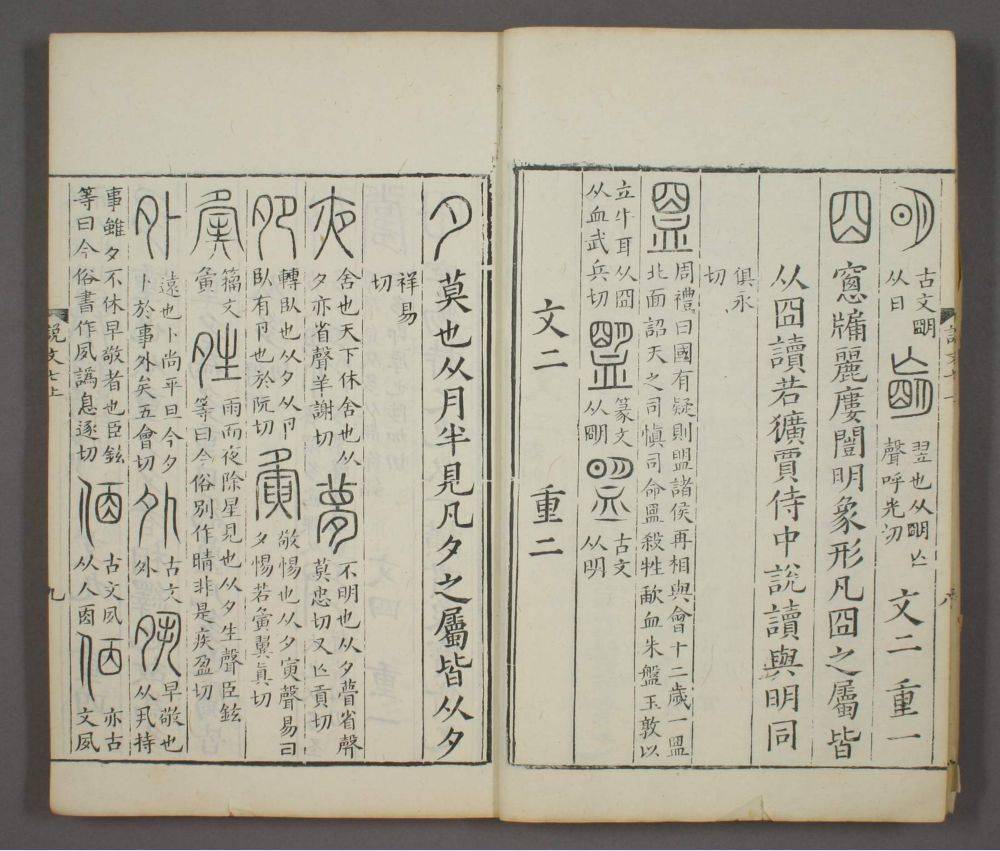 明 古文朙从日 𥄕 翌也从朙亾聲呼光切 文二 重一
囧 窻牖麗廔闓明象形凡囧之屬皆
从囧讀若獷賈侍中說讀與明同
俱永切
𥁰 周禮曰國有疑則盟諸侯再相與會十二歲一𥁰
北面詔天之司愼司命𥁰殺牲歃血朱盤玉敦以
立牛耳从囧从血武兵切 篆文从朙 古文从明
文二 重二
夕 莫也从月半見凡夕之屬皆从夕
祥易切
夜 舍也天下休舍也从夕亦省聲羊謝切 夢 不明也从夕瞢省聲莫忠切又亾貢切
夗 轉臥也从夕从卪臥有卪也於阮切 夤 敬惕也从夕寅聲易曰夕惕若夤翼眞切
籒文夤 夝 雨而夜除星見也从夕生聲臣鉉等曰今俗別作晴非是疾盈切
外 遠也卜尚平旦今夕卜於事外矣五會切 古文外 𡖊 早敬也从丮持
事雖夕不休早敬者也臣鉉等曰今俗書作夙譌息逐切 古文夙从人㐁 亦古文夙
說文七上 九